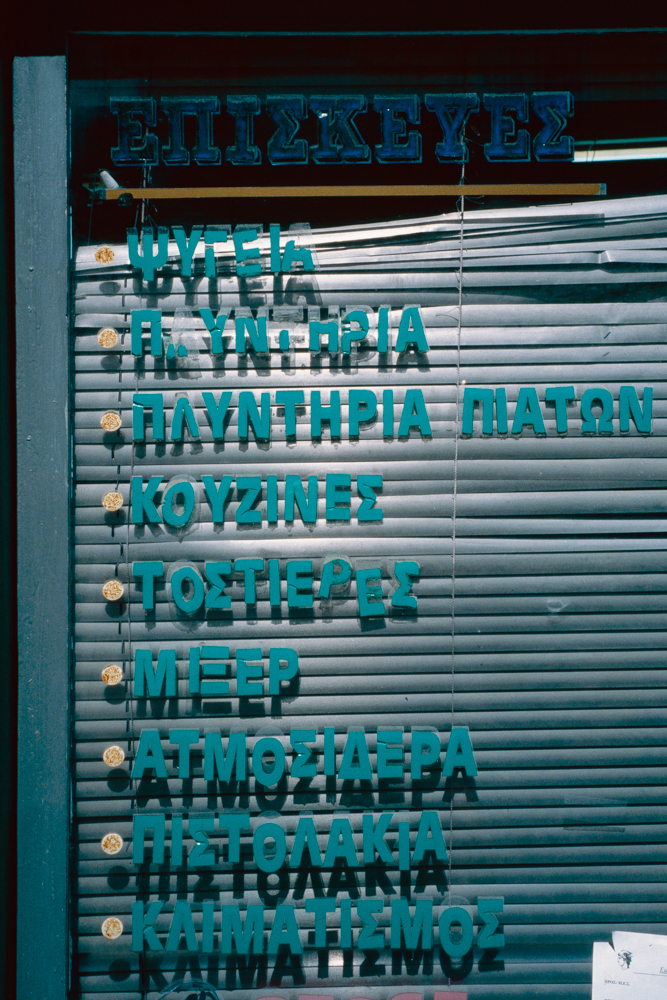 ΕΠΙΣΚΕΥΕΣ
ΨΥΓΕΙΑ
ΠΛΥΝΤΗΡΙΑ
ΠΛΥΝΤΗΡΙΑ ΠΙΑΤΩΝ
ΚΟΥΖΙΝΕΣ
ΤΟΣΤΙΕΡΕΣ
ΜΙΞΕΡ
ΑΤΜΟΣΙΔΕΡΑ
ΠΙΣΤΟΛΑΚΙΑ
ΚΛΙΜΑΤΙΣΜΟΣ